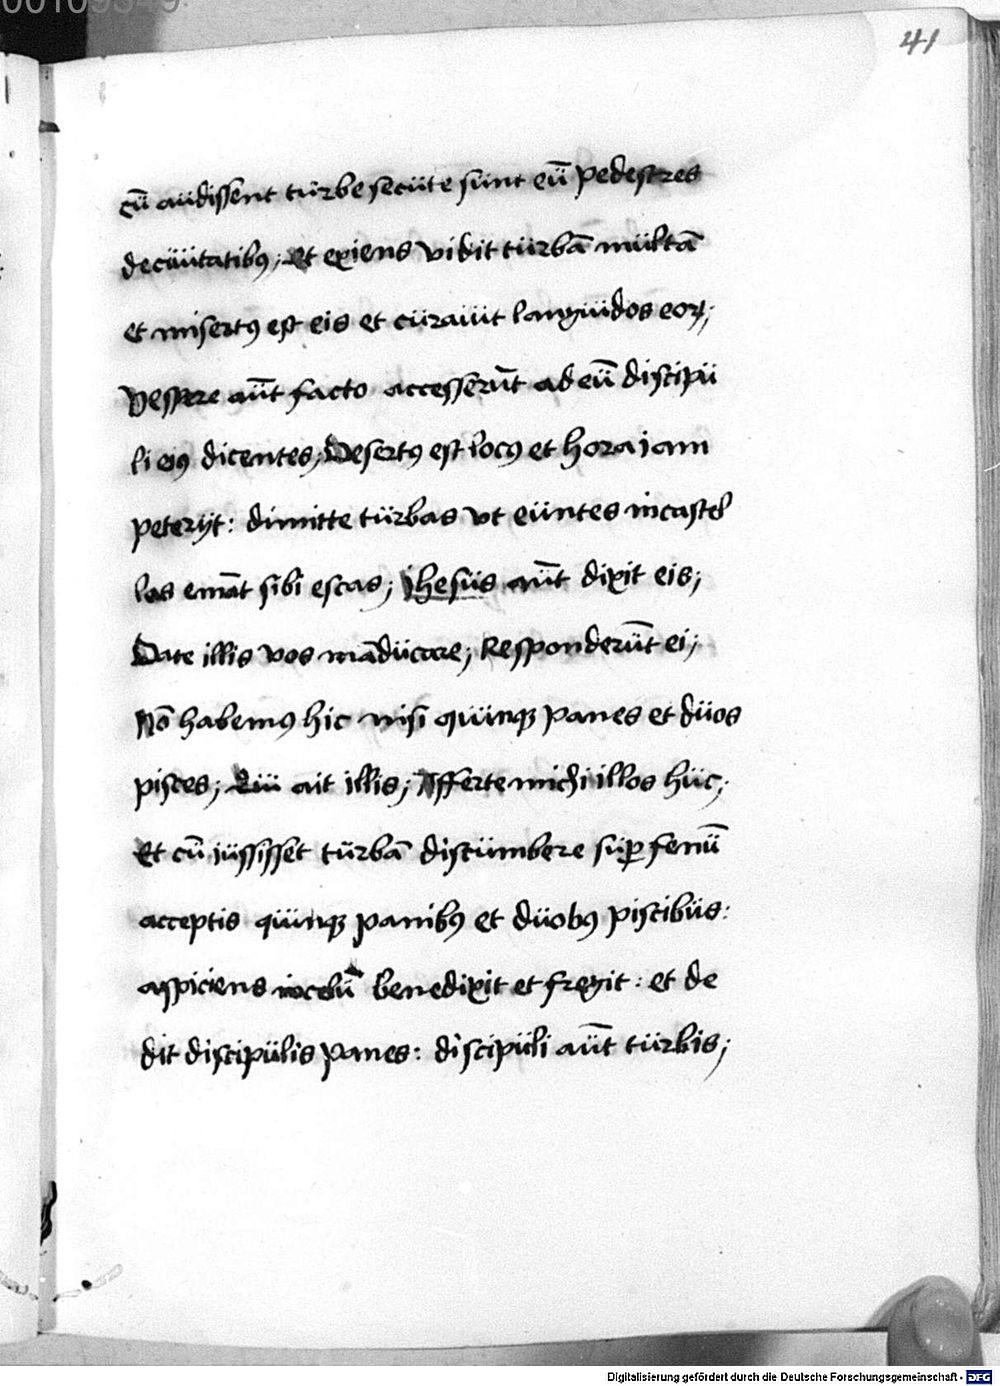 00109349
41
cū aüdissent türbe secüte sünt eū pedestres
decüütatibꝯ; Et exiens vidit türbā mültā
et misertꝯ est eis et cüraüit langüidos eoꝝ;
Vespere aūt facto accesserūt ad eū discipü
li eiꝯ dicentes; Desertꝯ est locꝯ et hora iam
peterijt: dimitte türbas vt eüntes incastel
las emāt sibi escas; Jhesüs aūt dixit eis;
Date illis vos mādücare; Responderūt ei;
Nō habemꝯ hic nisi qüinqꝫ panes et düos
pisces; Qüi ait illis; Afferte michi illos hüc;
Et cū jüssisset türbā discümbere süꝑ fenū
acceptis qüinqꝫ panibꝯ et düobꝯ piscibüs:
aspiciens incelū benedixit et fregit: et de
dit discipülis panes: discipüli aūt türbis;
Digitalisierung gefördert durch die Deutsche Forschungsgemeinschaft - DFG